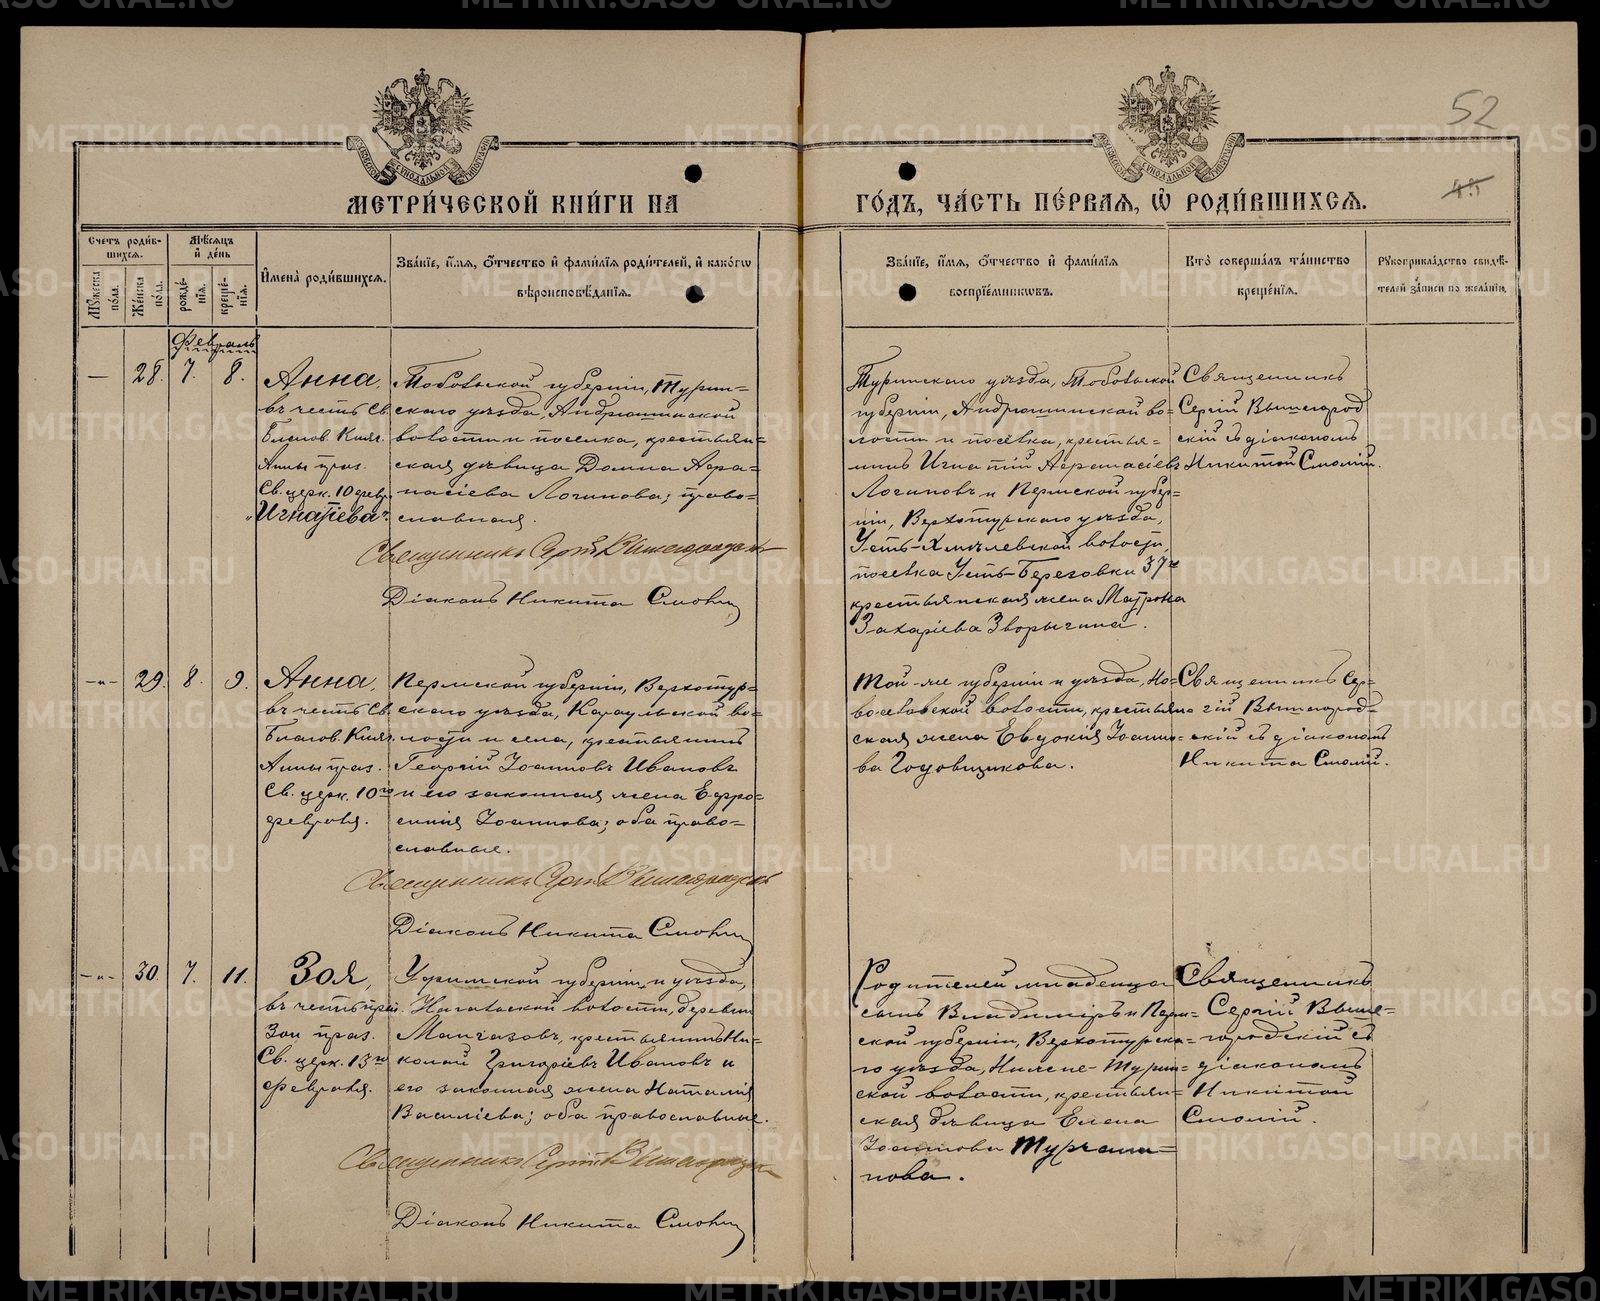 52
МЕТРИ́ЧЕСКОЙ КНИ́ГИ НА
ГО́ДЪ, ЧА́СТЬ ПЕ́РВАЯ, Ѽ РОДИ́ВШИХСЯ.
Счетъ роди́в-
шихся.
Мꙋжеска по́ла.
Же́нска по́ла.
Мѣ́сяцъ
и҆ де́нь
рожде́-
нїя.
креще́-
нїя.
И҆мена̀ роди́вшихся.
Зва́нїе, и҆́мя, ѻ҆́тчество и҆ фами́лїя роди́телей, и҆ како́гѡ
вѣроисповѣ́данїя.
Зва́нїе, и҆́мя, ѻ҆́тчество и҆ фами́лїя
воспрїе́мниковъ.
Кто̀ соверша́лъ та́инство
креще́нїя.
Рꙋкоприкла́дство свидѣ́-
телей за́писи по жела́нїю.
Февраль
— 28. 7. 8.
Анна,
въ честь Св.
Благов. Княг.
Анны праз.
Св. церк. 10 февр.
„Игнатіева“.
Тобольской губерніи, Турин-
скаго уѣзда, Андрюшинской
волости и поселка, крестьян-
ская дѣвица Домна Аѳа-
насіева Логинова; право-
славная.
Священникъ Сергій Вышегородскій
Діаконъ Никита Смолій
Туринскаго уѣзда, Тобольской
губерніи, Андрюшинской во-
лости и посёлка, крестья-
нинъ Игнатій Аѳанасіевъ
Логиновъ и Пермской губер-
ніи, Верхотурскаго уѣзда,
посёлка Усть-Березовки 37го
крестьянская жена Матрона
Захаріева Зворыгина.
Священникъ
Сергій Вышегород
скій съ діакономъ
Никитой Смолій.
-„- 29. 8. 9.
Анна,
въ честь Св.
Благов. Княг.
Анны праз.
Св. церк. 10го
февраля.
Пермской губерніи, Верхотур-
скаго уѣзда, Караульской во-
лости и села, крестьянинъ
Георгій Іоанновъ Ивановъ
и его законная жена Евфро-
синія Іоаннова; оба право-
славные.
Священникъ Сергій Вышегородскій
Діаконъ Никита Смолій
Той-же губерніи и уѣзда, Но-
восёловской волости, крестьян
ская жена Евдокія Іоанно-
ва Головщикова.
Священникъ Сер-
гій Вышегород-
скій съ діаконъ
Никита Смолій.
-„- 30. 7. 11.
Зоя,
въ честь прп.
Зои праз.
Св. церк. 13го
февраля.
Уфимской губерніи и уѣзда,
волости, деревни
крестьянинъ Ни-
колай Григоріевъ Ивановъ и
его законная жена Наталія
Василіева; оба православные.
Священникъ Сергій Вышегородскій
Діаконъ Никита Смолій
Родителей младенца
сынъ Владиміръ и Перм-
ской губерніи, Верхотурска-
го уѣзда, Нижне-Турин-
ской волости, крестьян-
ская дѣвица Елена
Іоаннова Турчани-
нова.
Священникъ
Сергій Выше-
городскій съ
діакономъ
Никитой
Смолій.
METRIKI.GASO-URAL.RU